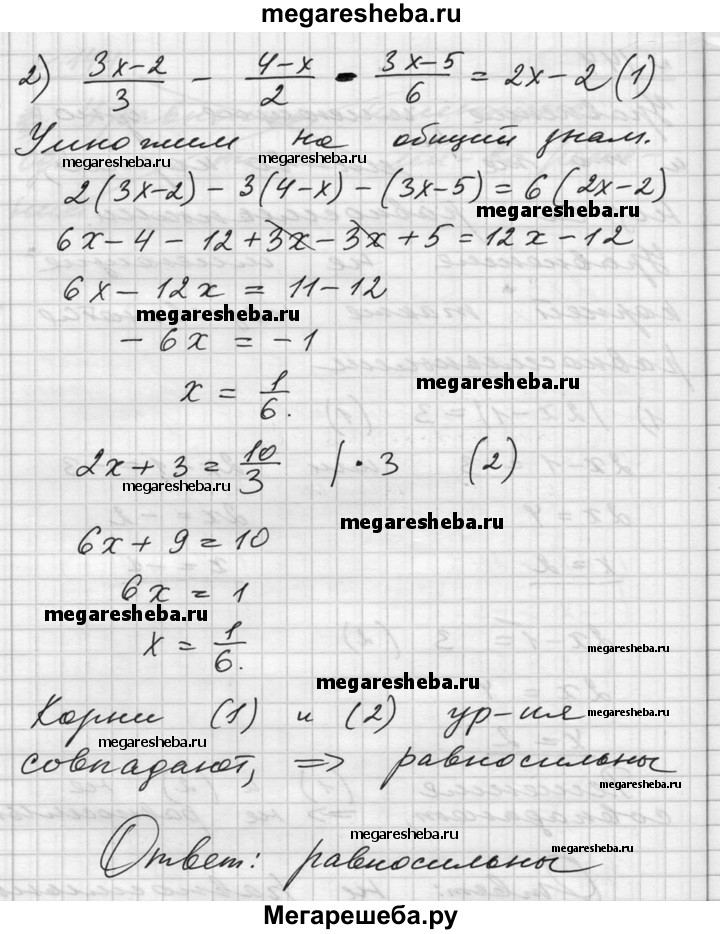 megaresheba.ru
2) (3x-2)/3 - (4-x)/2 - (3x-5)/6 = 2x-2 (1)
Умножим на общий знам.
megaresheba.ru megaresheba.ru
2(3x-2) - 3(4-x) - (3x-5) = 6(2x-2)
megaresheba.ru
6x-4-12+3x-3x+5=12x-12
6x-12x = 11-12
megaresheba.ru
-6x = -1
x = 1/6.
megaresheba.ru
2x+3 = 10/3 | · 3 (2)
megaresheba.ru
megaresheba.ru
6x+9=10
6x = 1
megaresheba.ru
x = 1/6.
megaresheba.ru
megaresheba.ru
Корни (1) и (2) ур-ия
megaresheba.ru
megaresheba.ru
совпадают, => равносильны
megaresheba.ru
megaresheba.ru
Ответ: равносильны
megaresheba.ru
Мегарешеба.ру